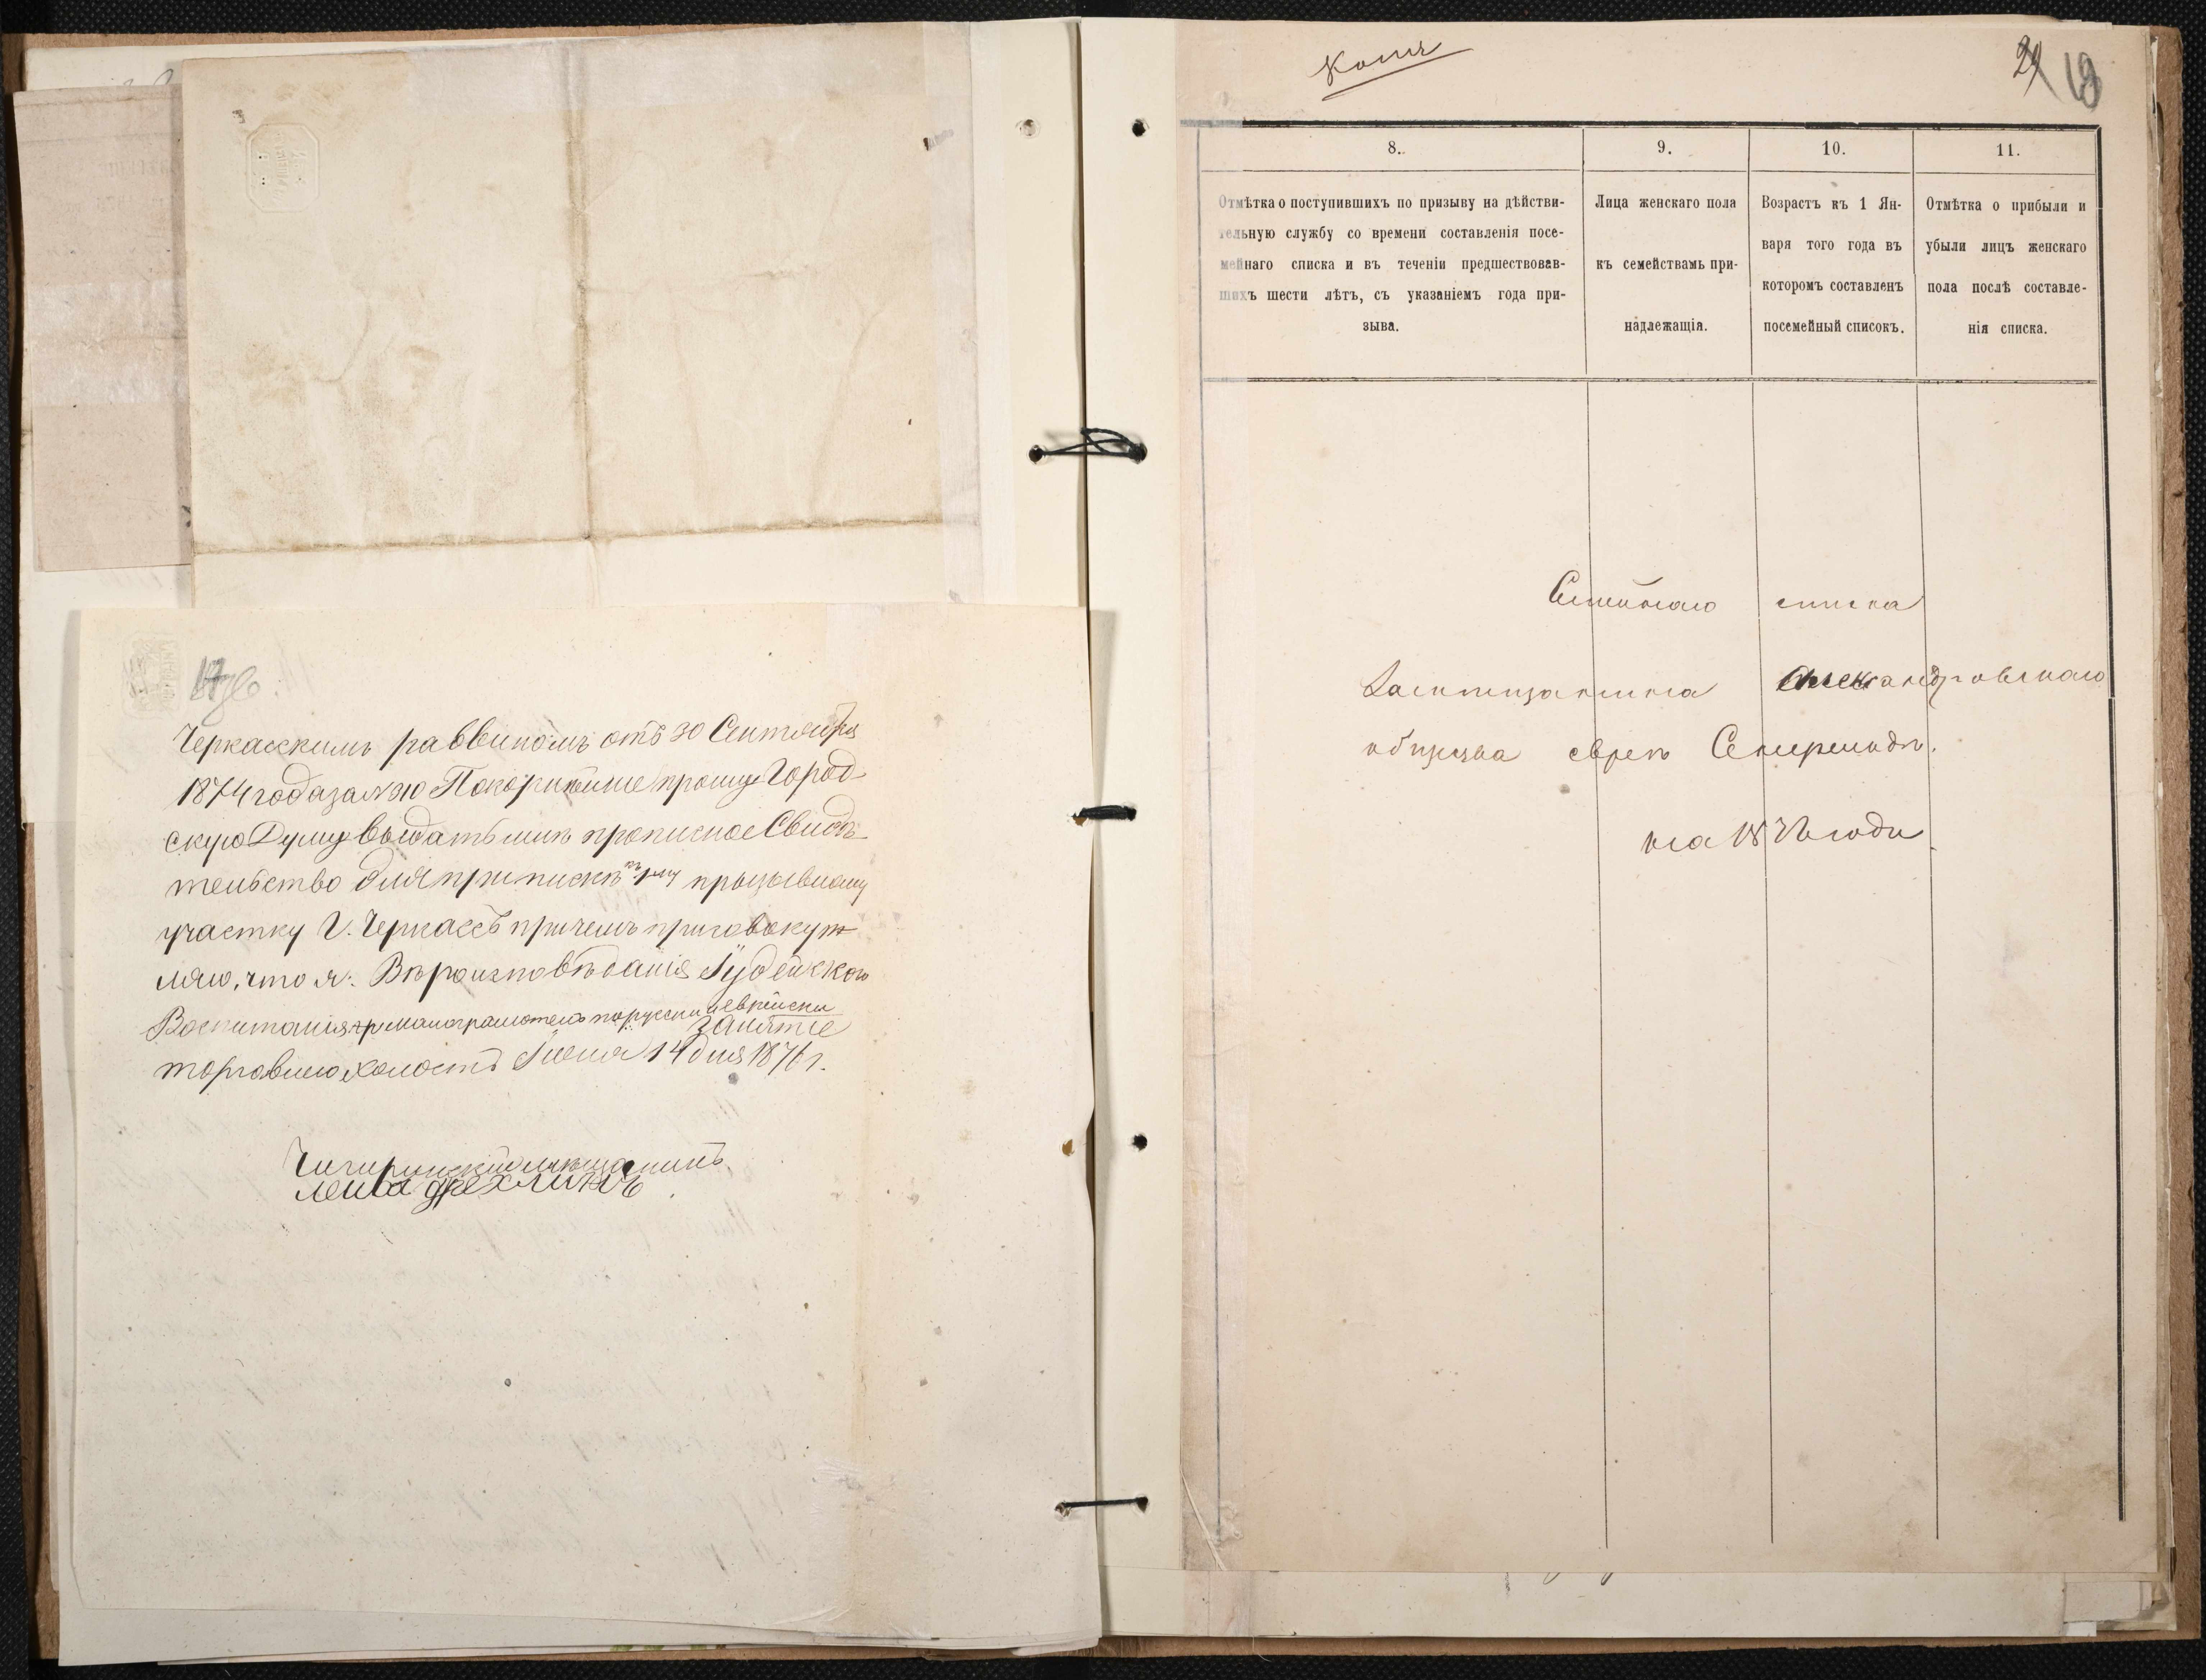 Черкасскимъ раввиномъ отъ 30 Сентября
1874 года за № 910 Покорнѣйше прошу Город-
скую Думу выдать мнѣ прописное Свидѣ-
тельство для приписки къ призывному
участку Г. Черкассъ причемъ присовокуп-
ляю, что я: Вѣроисповѣданія Іудейскаго
Воспитанія грамотенъ по русски и еврейски
занятіе
торговлею холостъ Іюня 14 дня 1876 г.
Чигиринскій мѣщанинъ
Леиба
Копія
29 19
8.
9.
10.
11.
Отмѣтка о поступившихъ по призыву на дѣйстви-
тельную службу со времени составленія посе-
мейнаго списка и въ теченіи предшествовав-
шихъ шести лѣтъ, съ указаніемъ года при-
зыва.
Лица женскаго пола
къ семействамъ при-
надлежащія.
Возрастъ къ 1 Ян-
варя того года въ
которомъ составленъ
посемейный списокъ.
Отмѣтка о прибыли и
убыли лицъ женскаго
пола послѣ составле-
нія списка.
Семейнаго списка
Александровскаго
общества еврея
на года